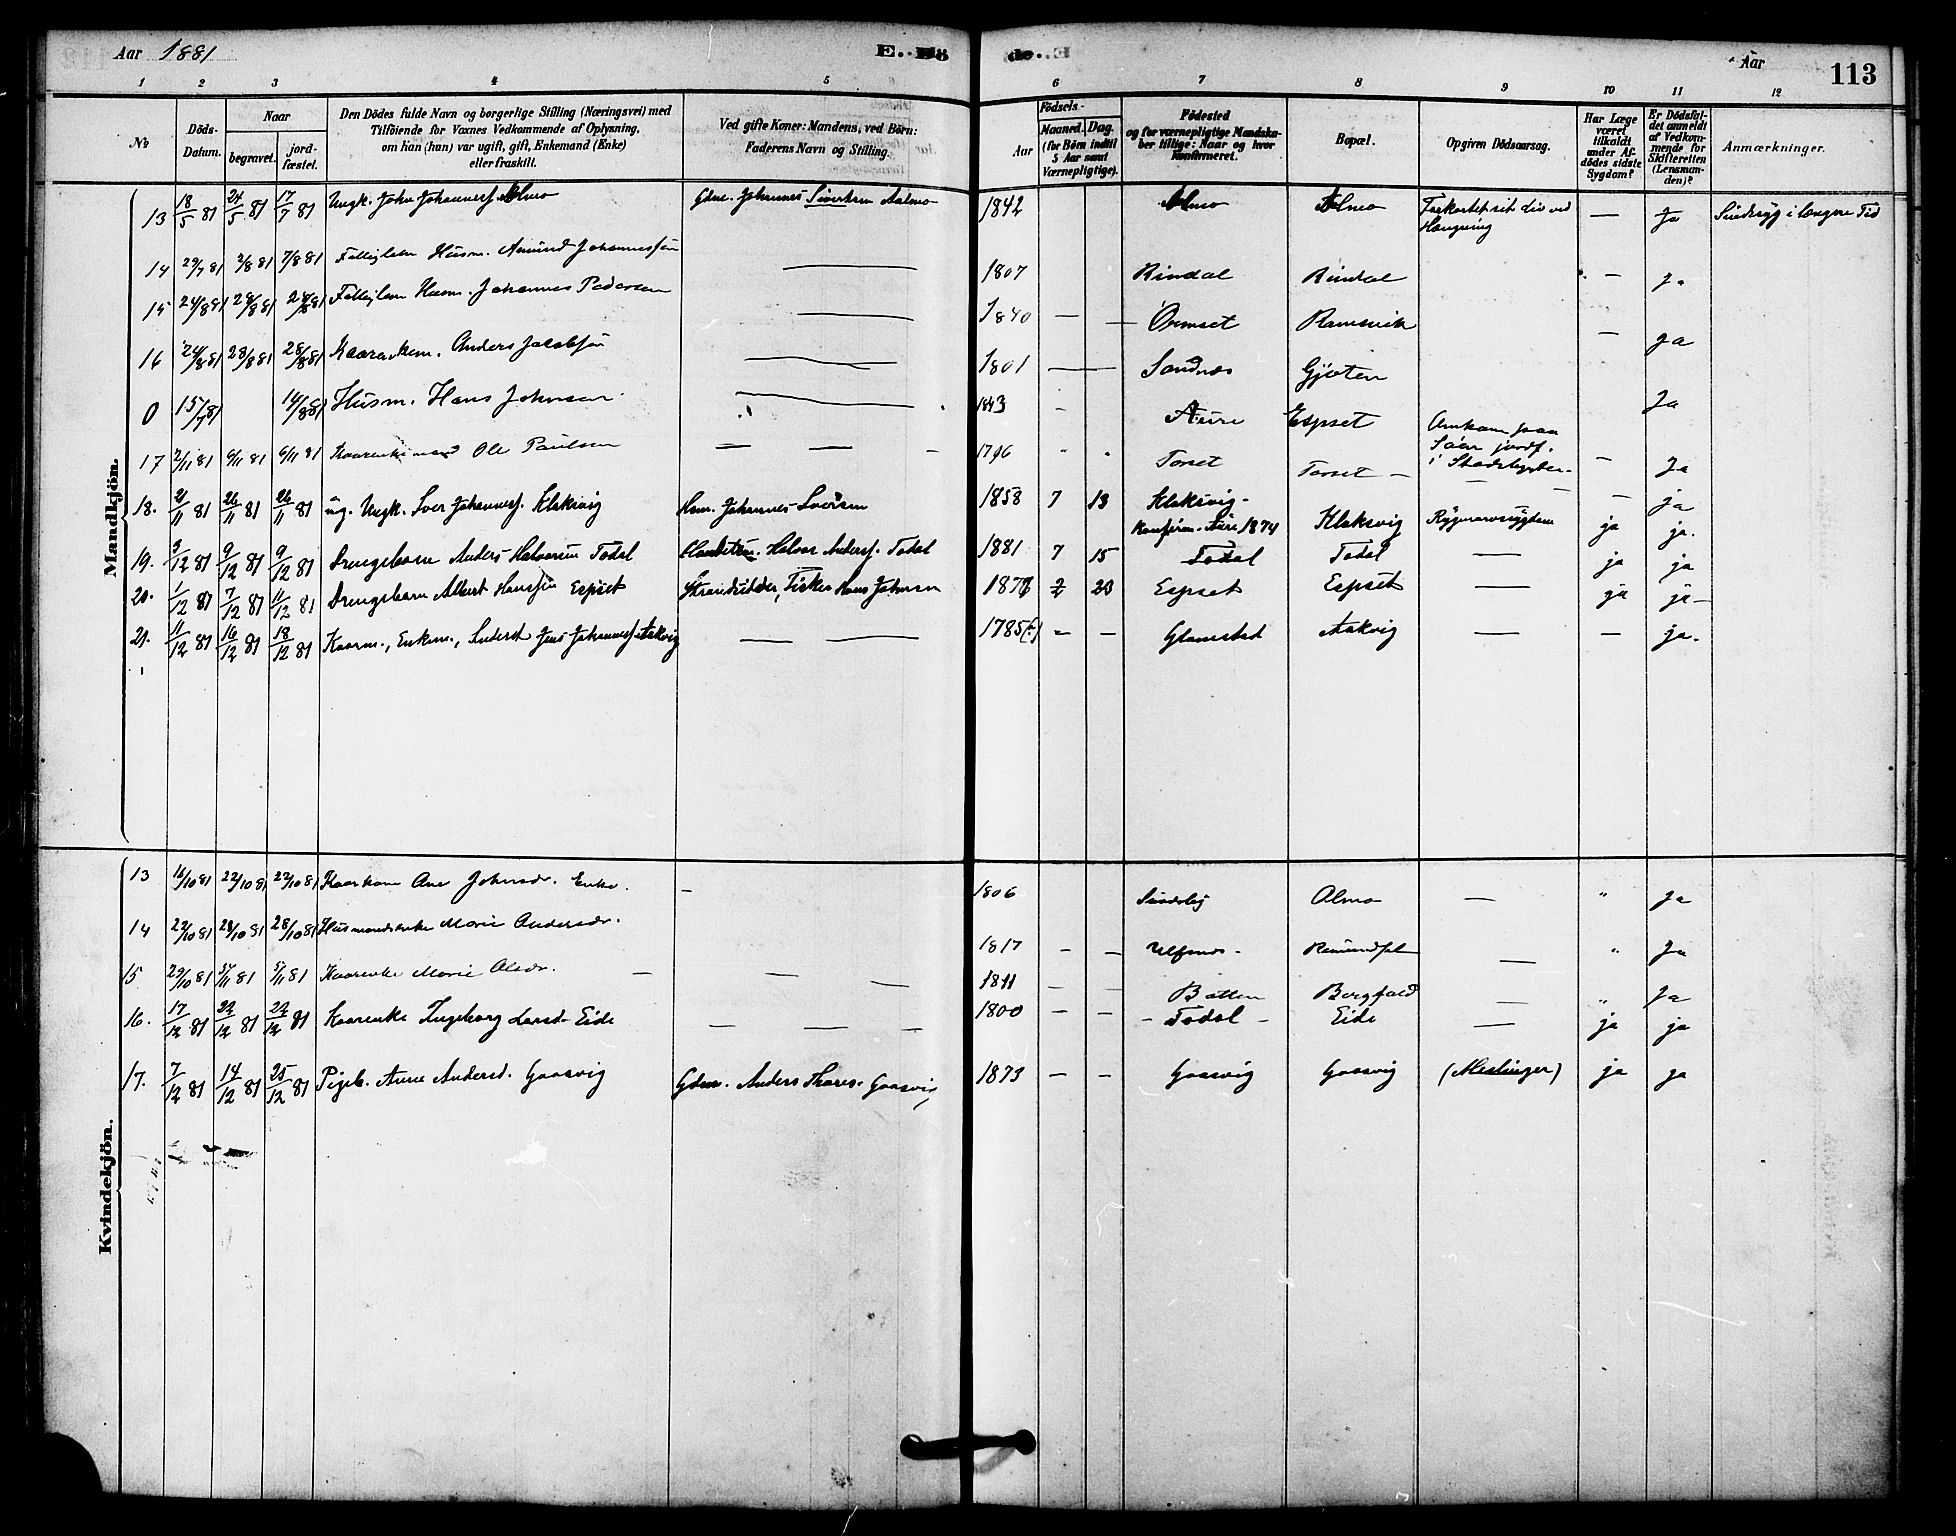 Aar 1881
E. Dö
de. E.
Aar
113
1 2 3 4 5 6 7 8 9 10 11 12
No
Döds-Datum.
Naar
begravet.
jord-fæstet.
Den Dödes fulde Navn og borgerlige Stilling (Næringsvei) med
Tilföiende for Voxnes Vedkommende af Oplysning,
om han (hun) var ugift, gift, Enkemand (Enke)
eller fraskilt.
Ved gifte Koner: Mandens, ved Börn:
Faderens Navn og Stilling.
Födsels-
Aar
Maaned. Dag.
(for Börn indtil
5 Aar samt
Værnepligtige).
Födested
og for værnepligtige Mandska-
ber tillige: Naar og hvor
Konfirmeret.
Bopæl.
Opgiven Dödsaarsag.
Har Læge
været
tilkaldt
under Af-
dödes sidste
Sygdom?
Er Dödsfal-
det anmeldt
af Vedkom-
mende for
Skifteretten
(Lensman-
den)?
Anmærkninger.
Mandkjön.
13 18/5 81 24/5 81 17/7 81 Ungk. John Johannesf. Almo Gdm. Johannes Sivertsen Aalmo 1842 Almo Almo Forkortet sit Liv ved Hængning — Ja Sindssyg i længere Tid
14 29/7 81 2/8 81 7/8 81 Fattiglem Husm. Amund Johannessön — 1807 Rindal Rindal — Ja
15 24/8 81 28/8 81 28/8 81 Fattiglem Husm. Johannes Pedersen — 1840 — — Ormset Ramsvik — Ja
16 24/8 81 28/8 81 28/8 81 Kaarenkem. Anders Jacobsön — 1801 — Sandnæs Gjøten Ja
0 15/7 81 14/8 81 Husm. Hans Johnsen — 1843 - Aure Espset Omkom paa Söen jordf. i Stadsbygden
17 2/11 81 6/11 81 6/11 81 Kaarenkemand Ole Paulsen — — - 1796 " " Torset Torset — — Ja
18. 21/11 81 26/11 81 26/11 81 ug. Ungk. Iver Johannesf. Klaksvig Hsm. Johannes Iversen 1858 7 13 Klaksvig - Konfirm. Aure 1874 Klaksvig Rygmarvssygdom ja ja.
19. 3/12 81 9/12 81 9/12 81 Drengebarn Anders Halvorsen Todal Halvor Andersf. Todal 1881 7 15 Todal Todal — ja ja
20. 1/12 81 7/12 81 11/12 81 Drengebarn Albert Hanssön Espset Strandsidder, Fisker Hans Johnsen 1878 2 20 Espset Espset — ja ja —
21. 11/12 81 16/12 81 18/12 81 Kaarm., Enkem., Inderst Jens Johannesf. Aakvig — — 1785 (?) — — Glamstad Aakvig — — ja.
Kvindekjön.
13 16/10 81 22/10 81 22/10 81 Kaarkone Ane Johnsdr. Enke. — 1806 Almo — " Ja
14 22/10 81 28/10 81 28/10 81 Husmandsenke Marie Andersdr. 1817 — — Ulfsnes - — " Ja
15 29/10 81 5/11 81 5/11 81 Kaarenke Marie Olsdr. — — — 1811 — — Botten Bergfald — " Ja
16. 17/12 81 22/12 81 22/12 81 Kaarenke Ingeborg Larsd. Eide — — — 1800 — — - Todal - Eide — ja ja
17. 7/12 81 14/12 81 25/12 81 Pigeb. Anne Andersd. Gaasvig Gdm. Anders Thores. Gaasvig 1873 — — Gaasvig Gaasvig (Meslinger) ja ja